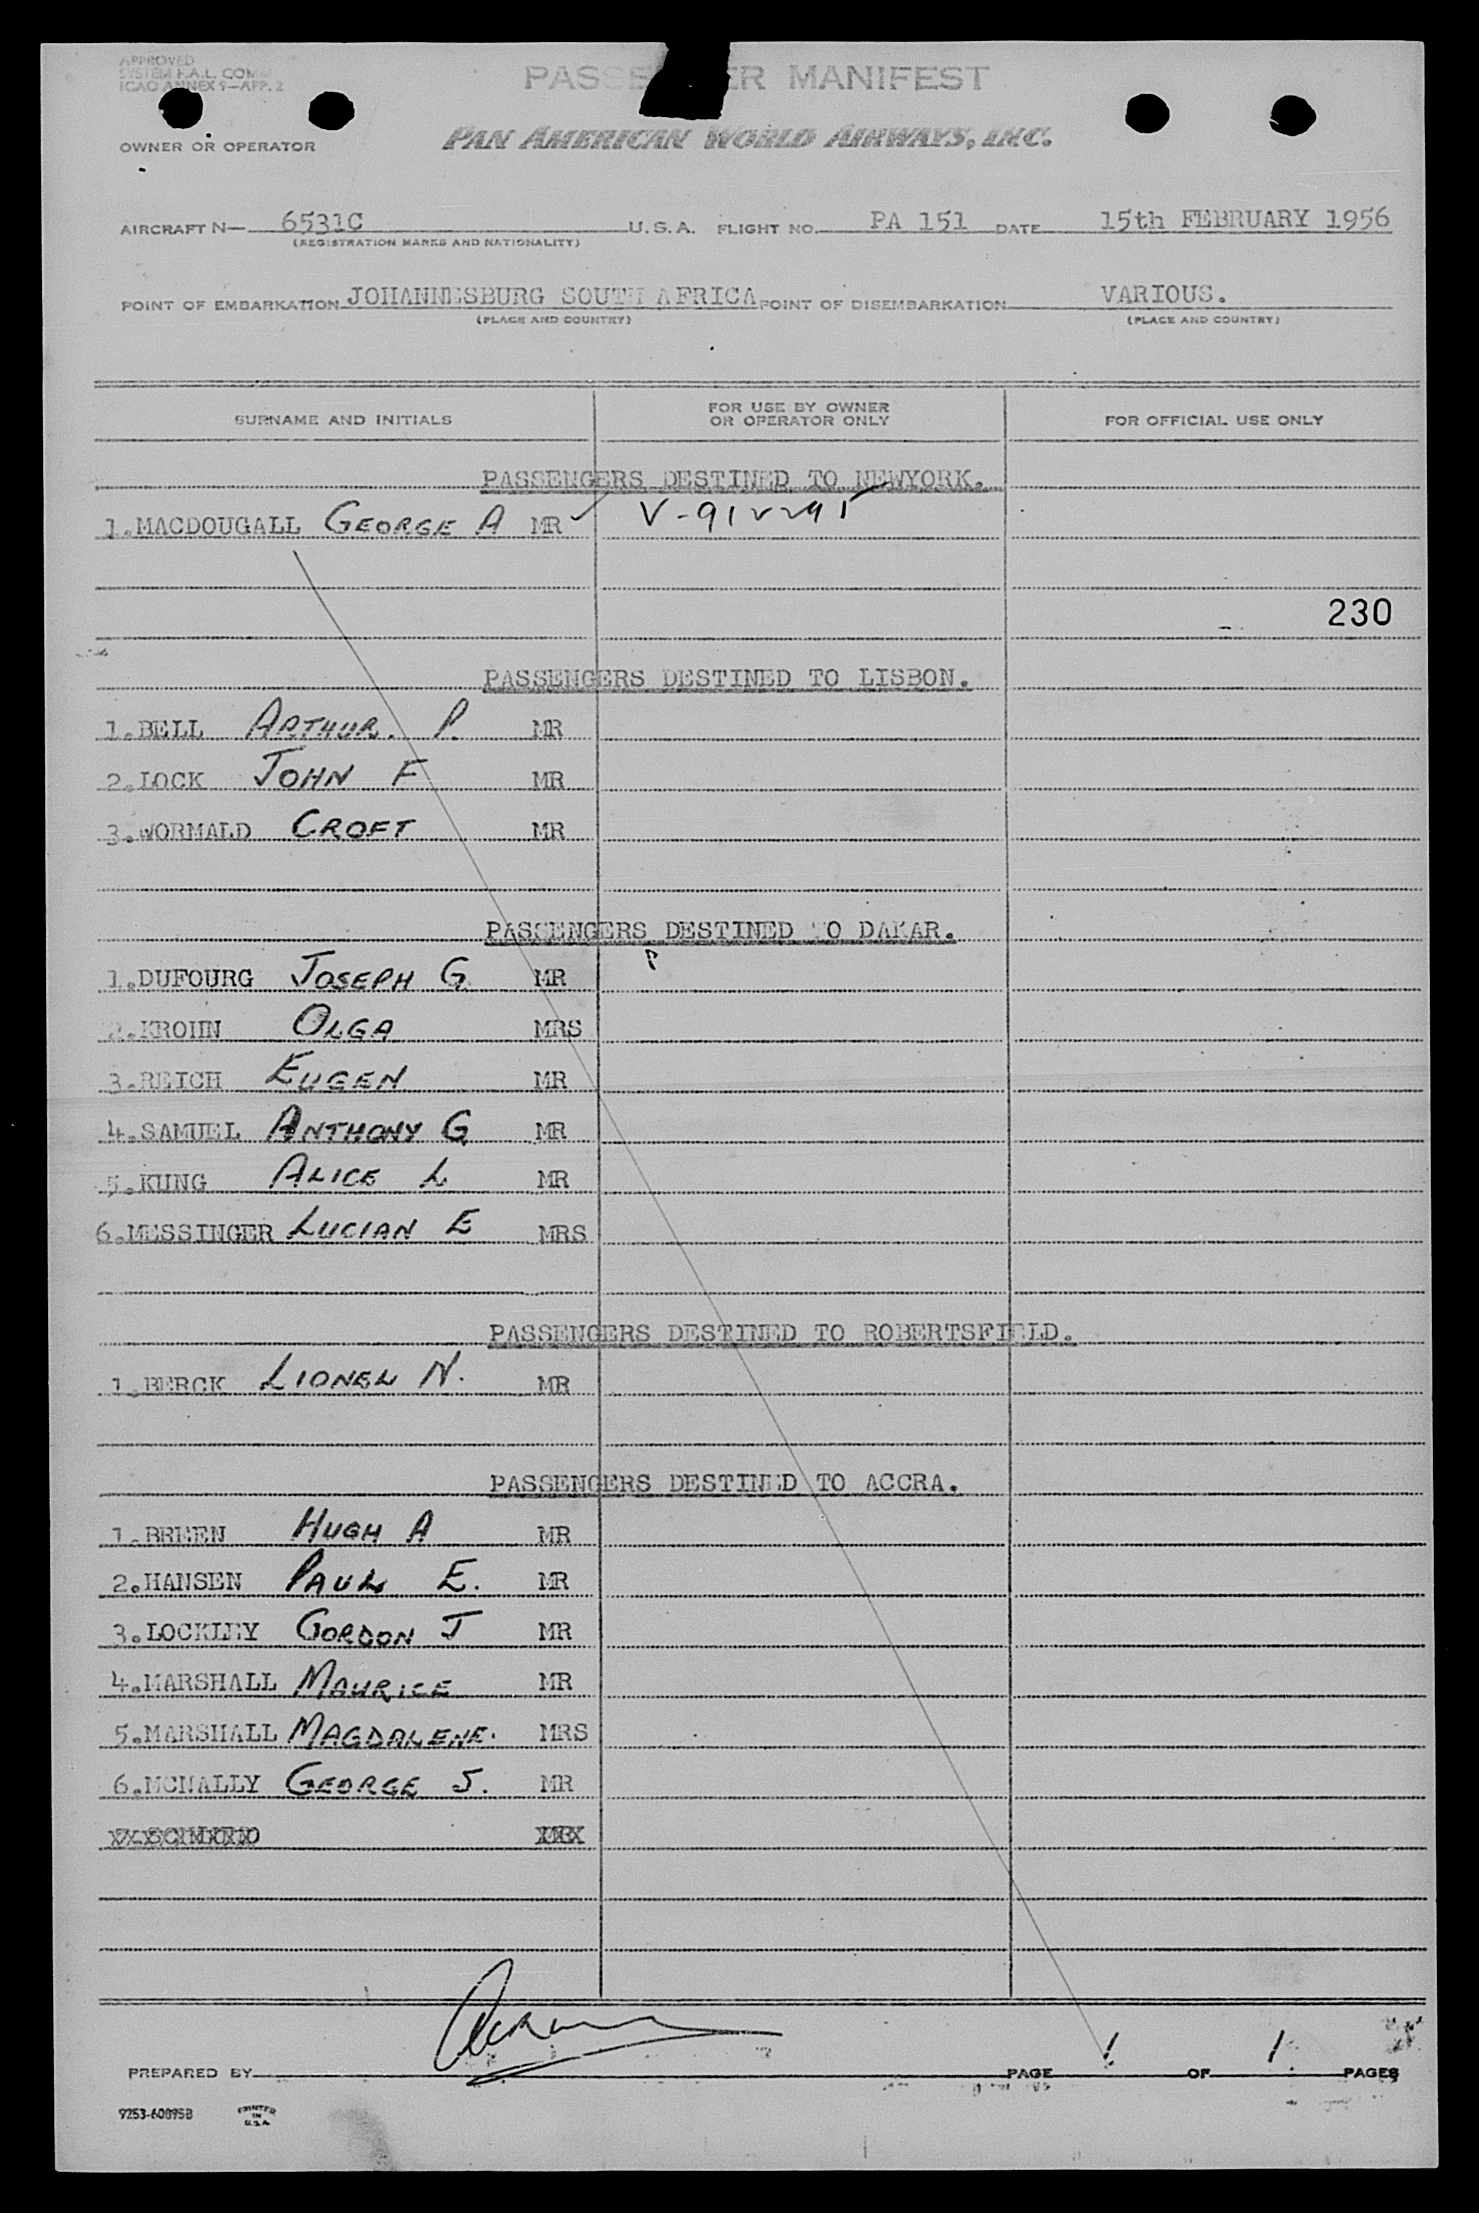 APPROVED
SYSTEM F.A.L. COMM
ICAO ANNEX 9—APP. 2
PASSENGER MANIFEST
OWNER OR OPERATOR
PAN AMERICAN WORLD AIRWAYS, INC.
AIRCRAFT N— 6531C U.S.A. FLIGHT NO. PA 151 DATE 15th FEBRUARY 1956
(REGISTRATION MARKS AND NATIONALITY)
POINT OF EMBARKATION JOHANNESBURG SOUTH AFRICA POINT OF DISEMBARKATION VARIOUS.
(PLACE AND COUNTRY) (PLACE AND COUNTRY)
SURNAME AND INITIALS FOR USE BY OWNER OR OPERATOR ONLY FOR OFFICIAL USE ONLY
PASSENGERS DESTINED TO NEWYORK.
1.MACDOUGALL GEORGE A MR V-912295
230
PASSENGERS DESTINED TO LISBON.
1.BELL ARTHUR. P. MR
2.LOCK JOHN F MR
3.WORMALD CROFT MR
PASSENGERS DESTINED TO DAKAR.
1.DUFOURG JOSEPH G. MR
2.KROHN OLGA MRS
3.REICH EUGEN MR
4.SAMUEL ANTHONY G MR
5.KUNG ALICE L MR
6.MESSINGER LUCIAN E MRS
PASSENGERS DESTINED TO ROBERTSFIELD.
1.BERCK LIONEL N. MR
PASSENGERS DESTINED TO ACCRA.
1.BREEN HUGH A MR
2.HANSEN PAUL E. MR
3.LOCKLEY GORDON J MR
4.MARSHALL MAURICE MR
5.MARSHALL MAGDALENE. MRS
6.MCNALLY GEORGE J. MR
PREPARED BY PAGE 1 OF 1 PAGES
9253-60895B PRINTED IN U.S.A.